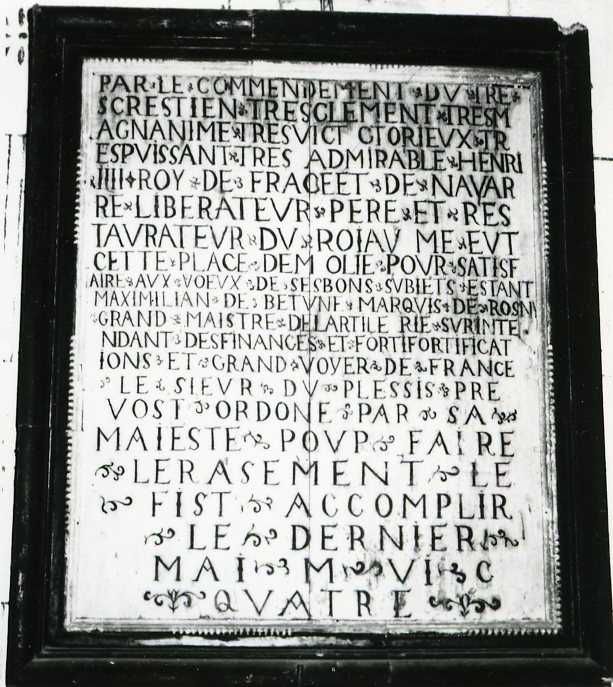 PAR LE COMMENDEMENT DV TRE
SCRESTIEN TRESCLEMENT TRESM
AGNANIME TRESVICT OTORIEVX TR
ESPVISSANT TRES ADMIRABLE HENRI
IIII ROY DE FRACEET DE NAVAR
RE LIBERATEVR PERE ET RES
TAVRATEVR DV ROIAV ME EVT
CETTE PLACE DEM OLIE POVR SATISF
AIRE AVX VOEVX DE SESBONS SVBIETS ESTANT
MAXIMILIAN DE BETVNE MARQVIS DE ROSNI
GRAND MAISTRE DELARTILE RIE SVRINTE
NDANT DESFINANCES ET FORTIFORTIFICAT
IONS ET GRAND VOYER DE FRANCE
LE SIEVR DV PLESSIS PRE
VOST ORDONE PAR SA
MAIESTE POVP FAIRE
LERASEMENT LE
FIST ACCOMPLIR
LE DERNIER
MAI M VI C
QVATRE